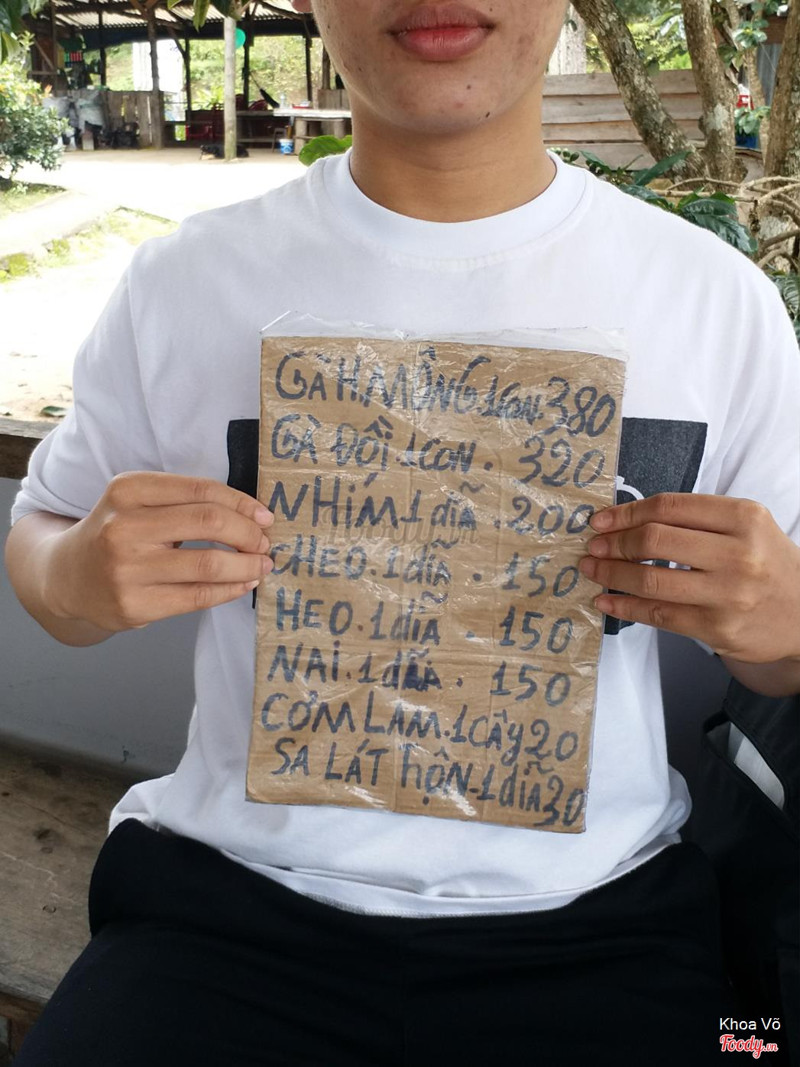 GÀ H.MÔNG 1CON. 380
GÀ ĐỒI 1CON. 320
NHÍM 1 dĩA. 200
CHEO. 1 dĩA. 150
HEO. 1 dĩA. 150
NAI. 1 dĩA. 150
CƠM LAM. 1 CÂY 20
SA LÁT hỘN. 1 dĩA 30
Foody.vn
Khoa Võ
Foody.vn